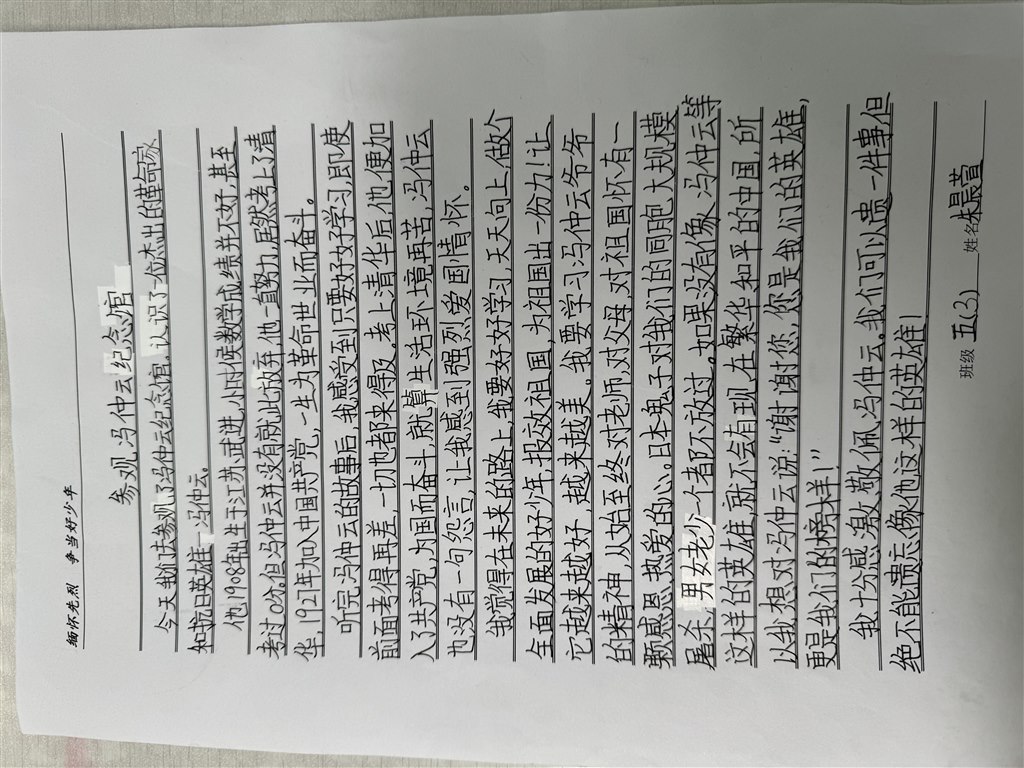 缅怀先烈 争当好少年
参观冯仲云纪念馆
今天我们去参观了冯仲云纪念馆,认识了一位杰出的革命家
和抗日英雄,冯仲云。
他1908年出生于江苏武进,小时候数学成绩并不好,甚至
考过0分。但冯仲云并没有就此放弃,他一直努力,居然考上了清
华,1927年加入中国共产党,一生为革命世业而奋斗。
听完冯仲云的故事后,我感受到只要好好学习,即使
前面考得再差,一切也都来得及。考上清华后,他,便加
入了共产党,为国而奋斗,就算生活环境再苦,冯仲云
也没有一句怨言,让我感到强烈爱国情怀。
我觉得在未来的路上,我要好好学习,天天向上,做个
全面发展的好少年,报效祖国,为祖国出一份力!让
它越来越好,越来越美。我要学习冯仲云爷爷
的精神,从始至终对老师,对父母,对祖国怀有一
颗感恩,热爱的心。日本鬼子对我们的同胞大规模
屠杀,男女老少一个都不放过。如果没有像冯仲云等
这样的英雄,就不会有现在繁华和平的中国,所
以我想对冯仲云说:“谢谢您,您是我们的英雄,
更是我们的榜样!”
我十分感激,敬佩,冯仲云。我们可以遗一件事但
绝不能遗忘像他这样的英雄!
班级 五(3) 姓名 朱晨萱